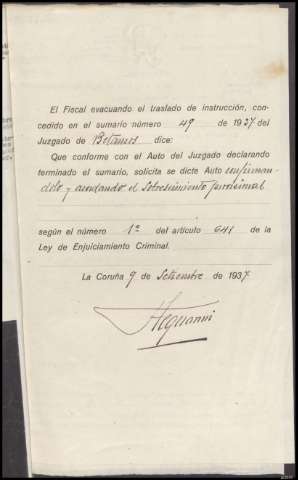 El Fiscal evacuando el traslado de instrucción, con-
cedido en el sumario número 49 de 1937 del
Juzgado de Betanzos dice:
Que conforme con el Auto del Juzgado declarando
terminado el sumario, solicita se dicte Auto confirman-
dolo y acordando el sobreseimiento provisional
según el número 1º del artículo 641 de la
Ley de Enjuiciamiento Criminal.
La Coruña 9 de Setiembre de 1937